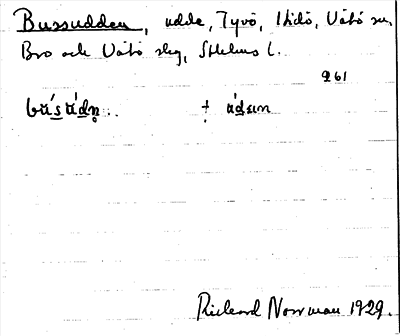 Bussudden, udde, Tyvö, Ikidö, Vätö sn.
Bro och Vätö skg, Sthlms l.
261
bŭ́sŭ́dn̥ .. + ŭ́dɛın
Rickard Norrman 1929.